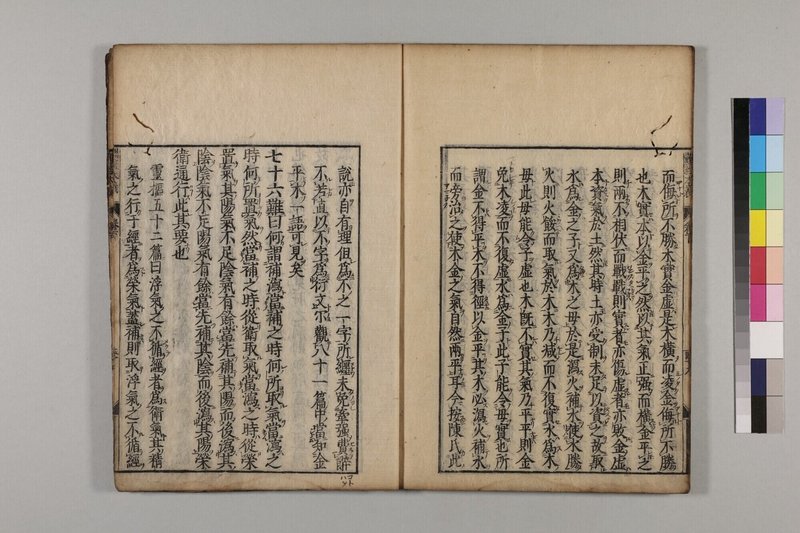 而侮所不勝木實金虛是木橫而凌金侮所不勝
也木實本以金平之然以其氣正强而橫金平之
則兩不相伏而戰戰則實者亦傷虛者亦敗金虛
本資氣於土然其時土亦受制未足以資之故取
水爲金之子又爲木之母於是瀉火補水使水勝
火則火餒而取氣於木木乃減而不復實水爲木
母此母能令子虛也木既不實其氣乃平平則金
免木凌而不復虛水爲金子此子能令母實也所
謂金不得平木不得徑以金平其木必瀉火補水
而旁治之使木金之氣自然兩平耳今按陳氏此
說亦自有理但爲不之一字所纏未免牽强費辭
不若直以不字爲衍文尔觀八十一篇中當知金
平木一語可見矣
七十六難曰何謂補瀉當補之時何所取氣當瀉之
時何所置氣然當補之時從衛取氣當瀉之時從榮
置氣其陽氣不足陰氣有餘當先補其陽而後瀉其
陰陰氣不足陽氣有餘當先補其陰而後瀉其陽榮
衛通行此其要也
靈樞五十二篇曰浮氣之不循經者爲衛氣其精
氣之行于經者爲榮氣蓋補則取浮氣之不循經